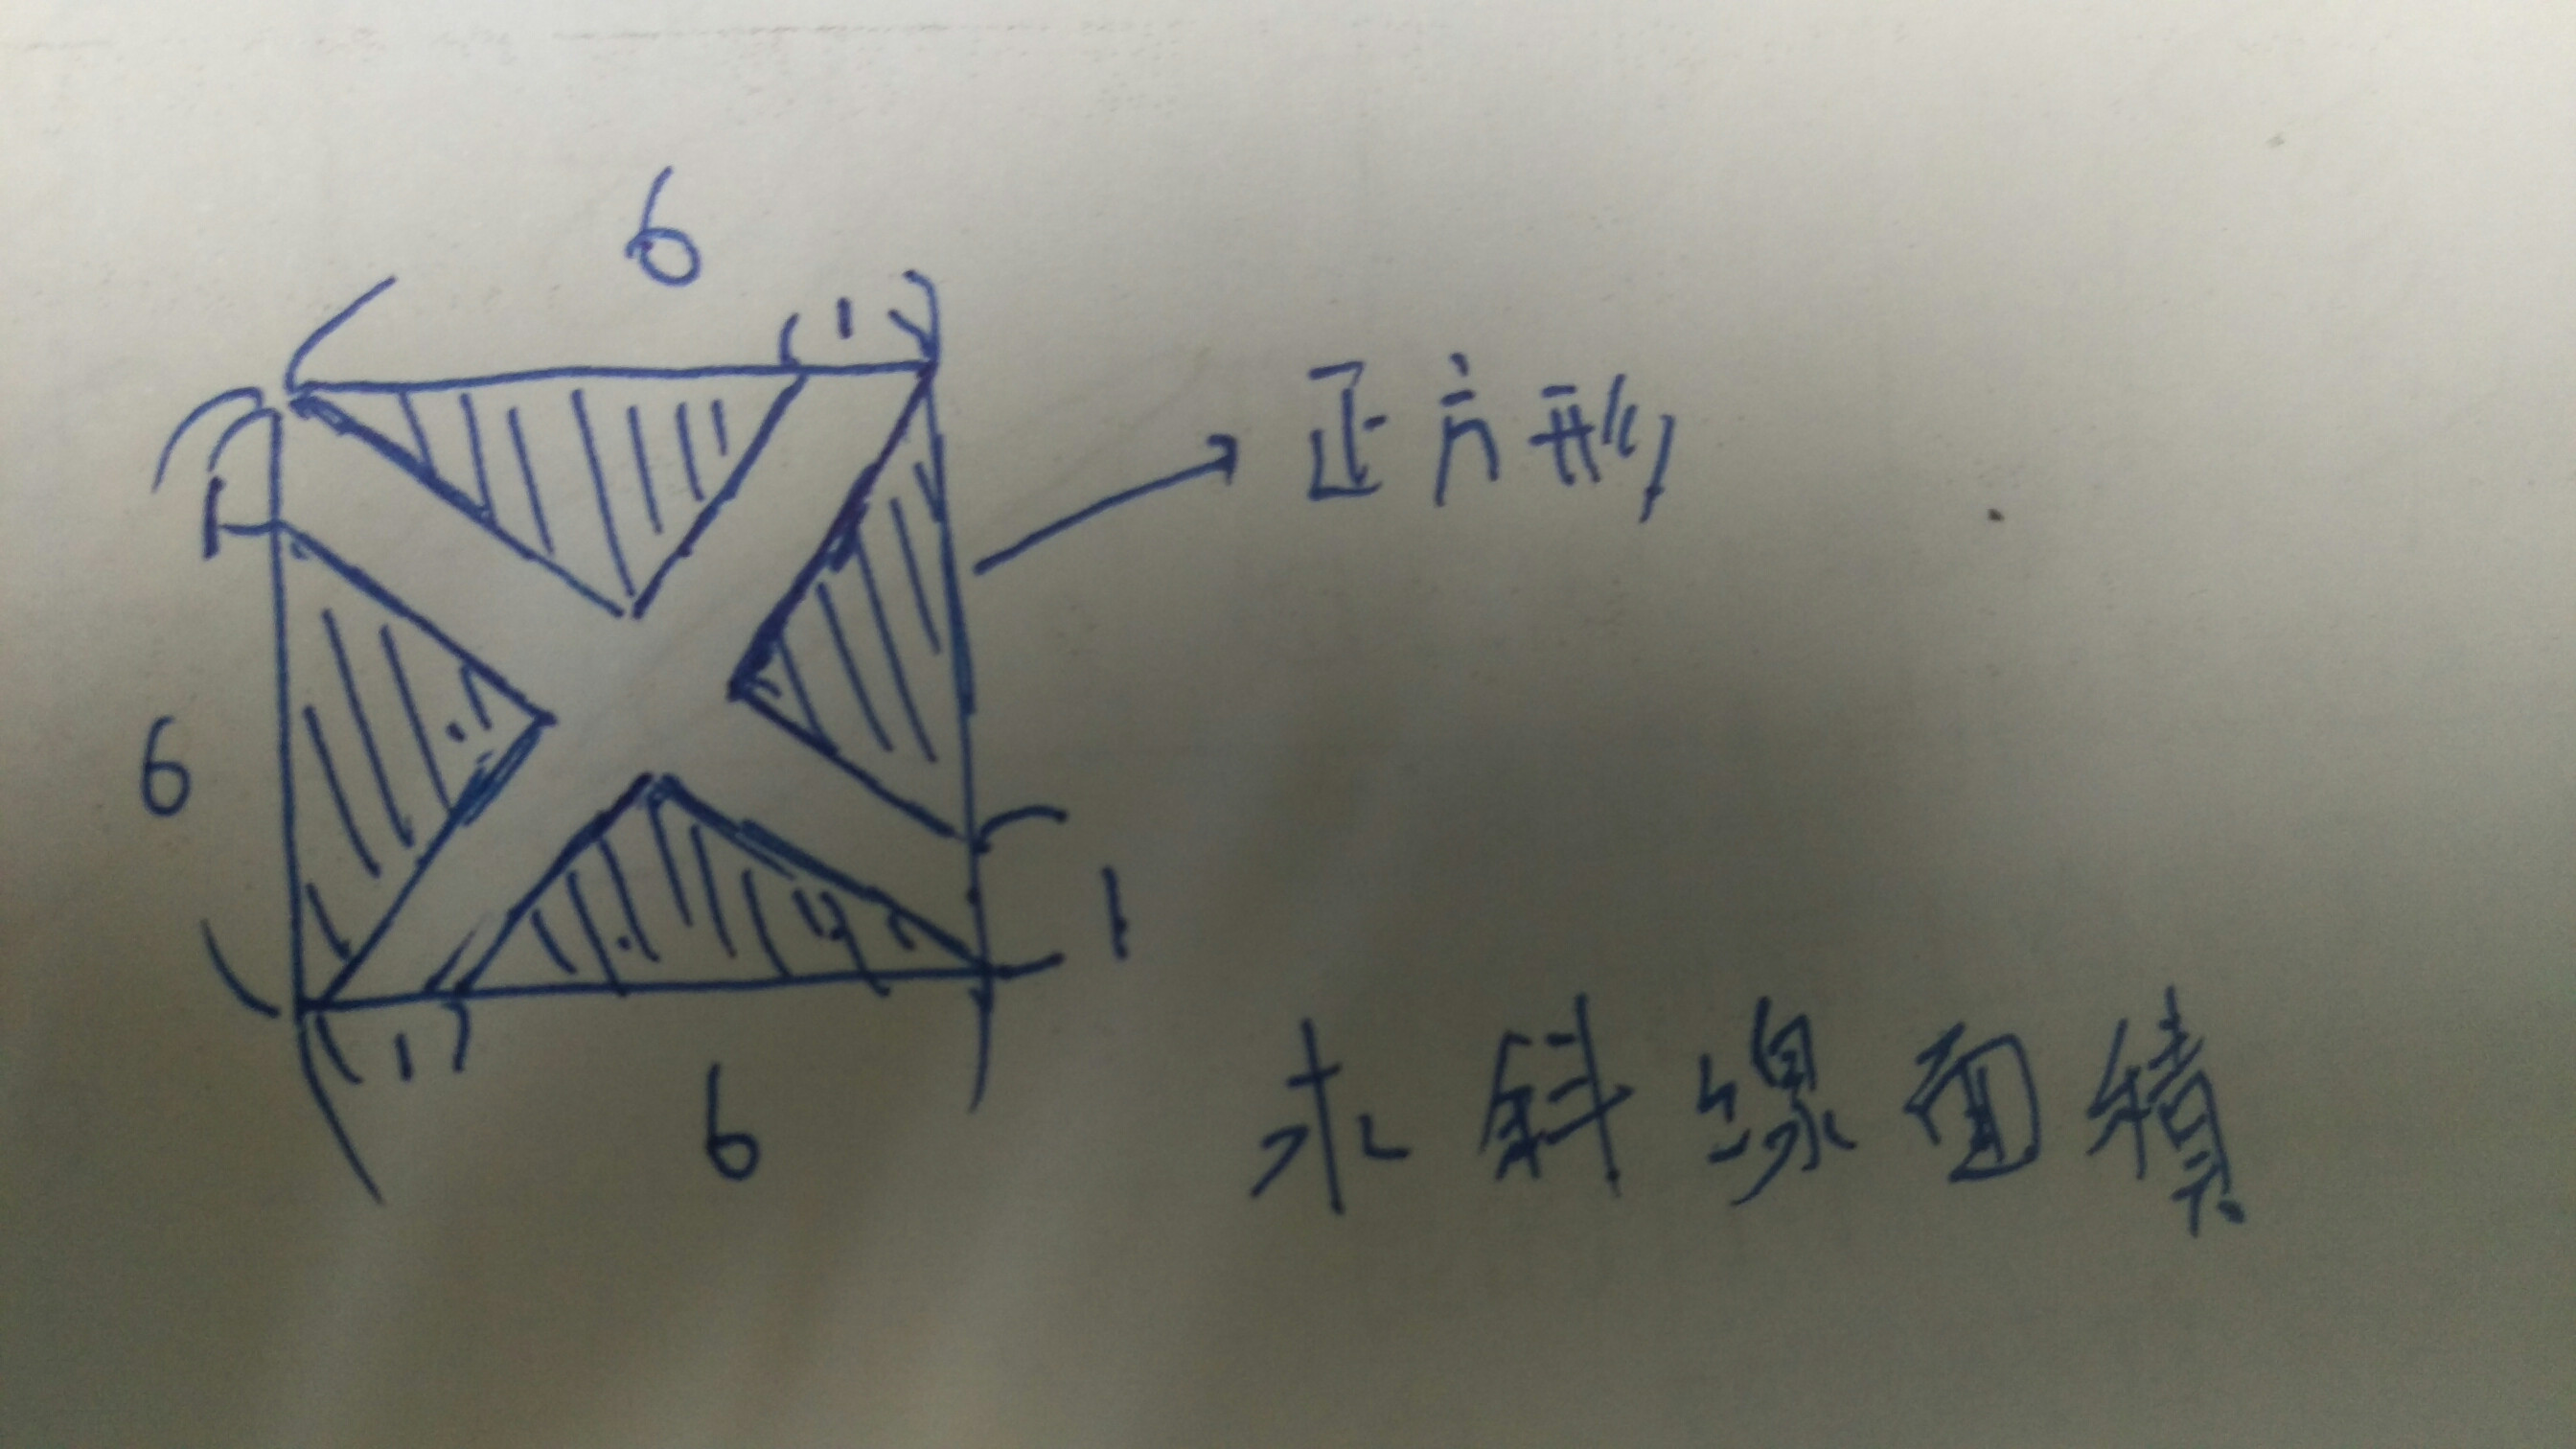 6
1
正方形
1
6
1
1
6
求斜線面積